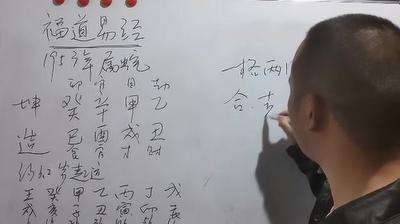 福道易经
1953年属蛇
印 官 日 劫
坤 癸 辛 甲 乙
造 巳 酉 戌 丑
食 官 才 财
岁起运
壬 癸 甲 乙 丙 丁 戊
戌 亥 子 丑 寅 卯 辰
格两
合